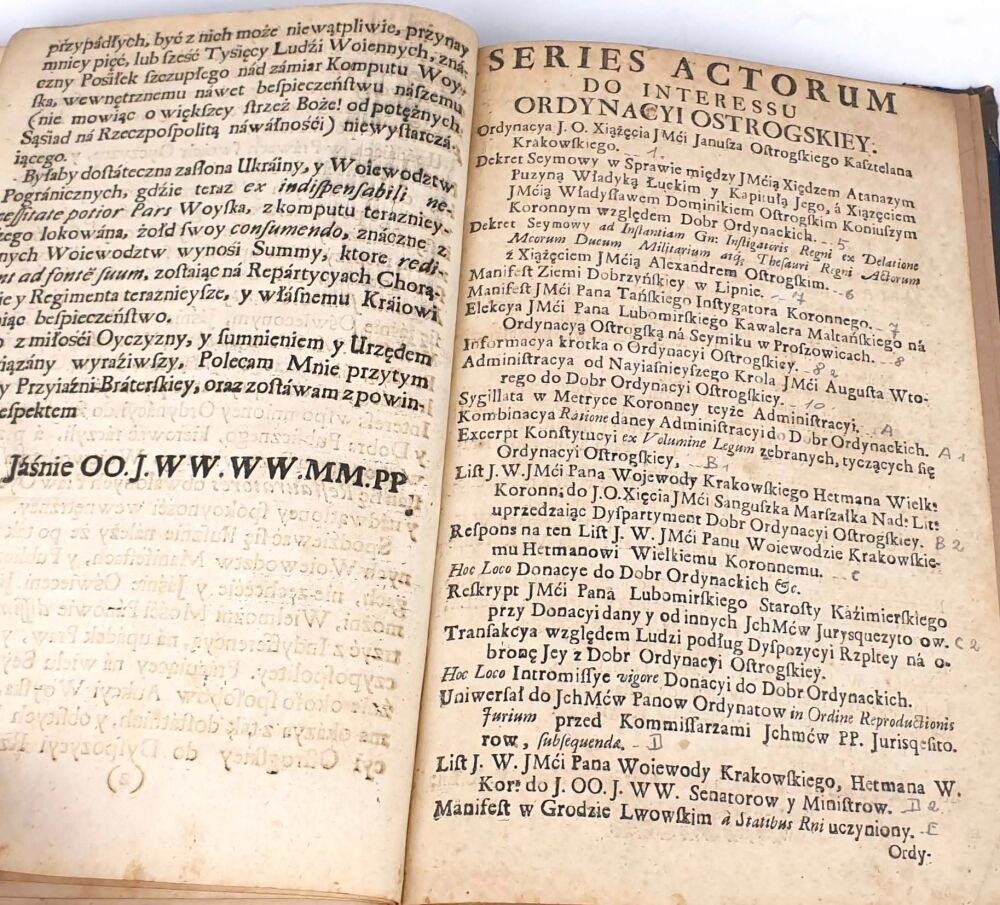 przypádłych, być z nich może niewątpliwie, przynay
mniey pięć, lub ſześć Tyſięcy Ludźi Woiennych, zná-
czny Pośiłek ſzczupłego nád zámiar Komputu Woy-
ſka, wewnętrznemu náwet beſpieczeńſtwu náſzemu
(nie mowiąc o większey ſtrzeż Boże! od potężnych
Sąśiad ná Rzeczpoſpolitą náwáłnośći) niewyſtarczá-
iącego.
Byłaby doſtáteczna zaſłona Ukráiny, y Woiewodztw
Pogránicznych, gdźie teraz ex indiſpenſabili ne-
ceſſitate potior Pars Woyſka, z komputu terazniey-
ſzego lokowána, żołd ſwoy conſumendo, znáczne z
nych Woiewodztw wynośi Summy, ktore redi-
nt ad fontē ſuum, zoſtaiąc ná Repártycyach Chorą-
ie y Regimenta teraznieyſze, y właſnemu Kráiowi
iąc beſpieczeńſtwo.
z miłośći Oyczyzny, y ſumnieniem y Urzędem
wiązány wyraźiwſzy, Polecam Mnie przytym
y Przyiáźni Bráterſkiey, oraz zoſtáwam z powin-
eſpektem
Jáśnie OO. J. WW. WW. MM. PP
(a)
SERIES ACTORUM
DO INTERESSU
ORDYNACYI OSTROGSKIEY.
Ordynacya J. O. Xiążęćia JMći Januſza Oſtrogſkiego Kaſztelana
Krakowſkiego. 1.
Dekret Seymowy w Sprawie między JMćią Xiędzem Atanazym
Puzyną Władyką Łuckim y Kapitułą Jego, á Xiązęciem
JMćią Władyſławem Dominikiem Oſtrogſkim Koniuſzym
Koronnym względem Dobr Ordynackich. 5
Dekret Seymowy ad Inſtantiam Gñr: Inſtigatoris Regni ex Delatione
Mcorum Ducum Militarium atq; Theſauri Regni Actorum
z Xiążęciem JMćią Alexandrem Oſtrogſkim. 6
Manifeſt Ziemi Dobrzyńſkiey w Lipnie. 7
Manifeſt JMći Pana Tańſkiego Inſtygatora Koronnego. 7
Elekcya JMći Pana Lubomirſkiego Kawalera Maltańſkiego ná
Ordynacyą Oſtrogſką ná Seymiku w Proſzowicach. 8
Informacya krotka o Ordynacyi Oſtrogſkiey. 82
Adminiſtracya od Nayiaśnieyſzego Krola JMći Auguſta Wto-
rego do Dobr Ordynacyi Oſtrogſkiey. 10
Sygillata w Metryce Koronney teyże Adminiſtracyi. A
Kombinacya Ratione daney Adminiſtracyi do Dobr Ordynackich. A 1
Excerpt Konſtytucyi ex Volumine Legum zebranych, tyczących ſię
Ordynacyi Oſtrogſkiey, B1
Liſt J. W. JMći Pana Wojewody Krakowſkiego Hetmana Wielk:
Koronn: do J. O. Xięcia JMći Sanguſzka Marſzałka Nad: Lit:
uprzedzaiąc Dyſpartyment Dobr Ordynacyi Oſtrogſkiey. B 2
Reſpons na ten Liſt J. W. JMći Panu Woiewodzie Krakowſkie-
mu Hetmanowi Wielkiemu Koronnemu. C
Hoc Loco Donacye do Dobr Ordynackich &c.
Reſkrypt JMći Paná Lubomirſkiego Staroſty Kaźimierſkiego
przy Donacyi dany y od innych JchMćw Jurysquezyto ow. C 2
Tranſakcya względem Ludzi podług Dyſpozycyi Rzpltey ná o-
bronę Jey z Dobr Ordynacyi Oſtrogſkiey.
Hoc Loco Intromiſſye vigore Donacyi do Dobr Ordynackich.
Uniwerſał do JchMćw Panow Ordynatow in Ordine Reproductionis
Jurium przed Kommiſſarzami Jchmćw PP. Jurisqeſito.
row, ſubſequenda. D
Liſt J. W. JMći Pana Woiewody Krakowſkiego, Hetmana W.
Kor: do J. OO. J. WW. Senatorow y Miniſtrow. D 2
Manifeſt w Grodzie Lwowſkim à Statibus Rni uczyniony. E
Ordy-